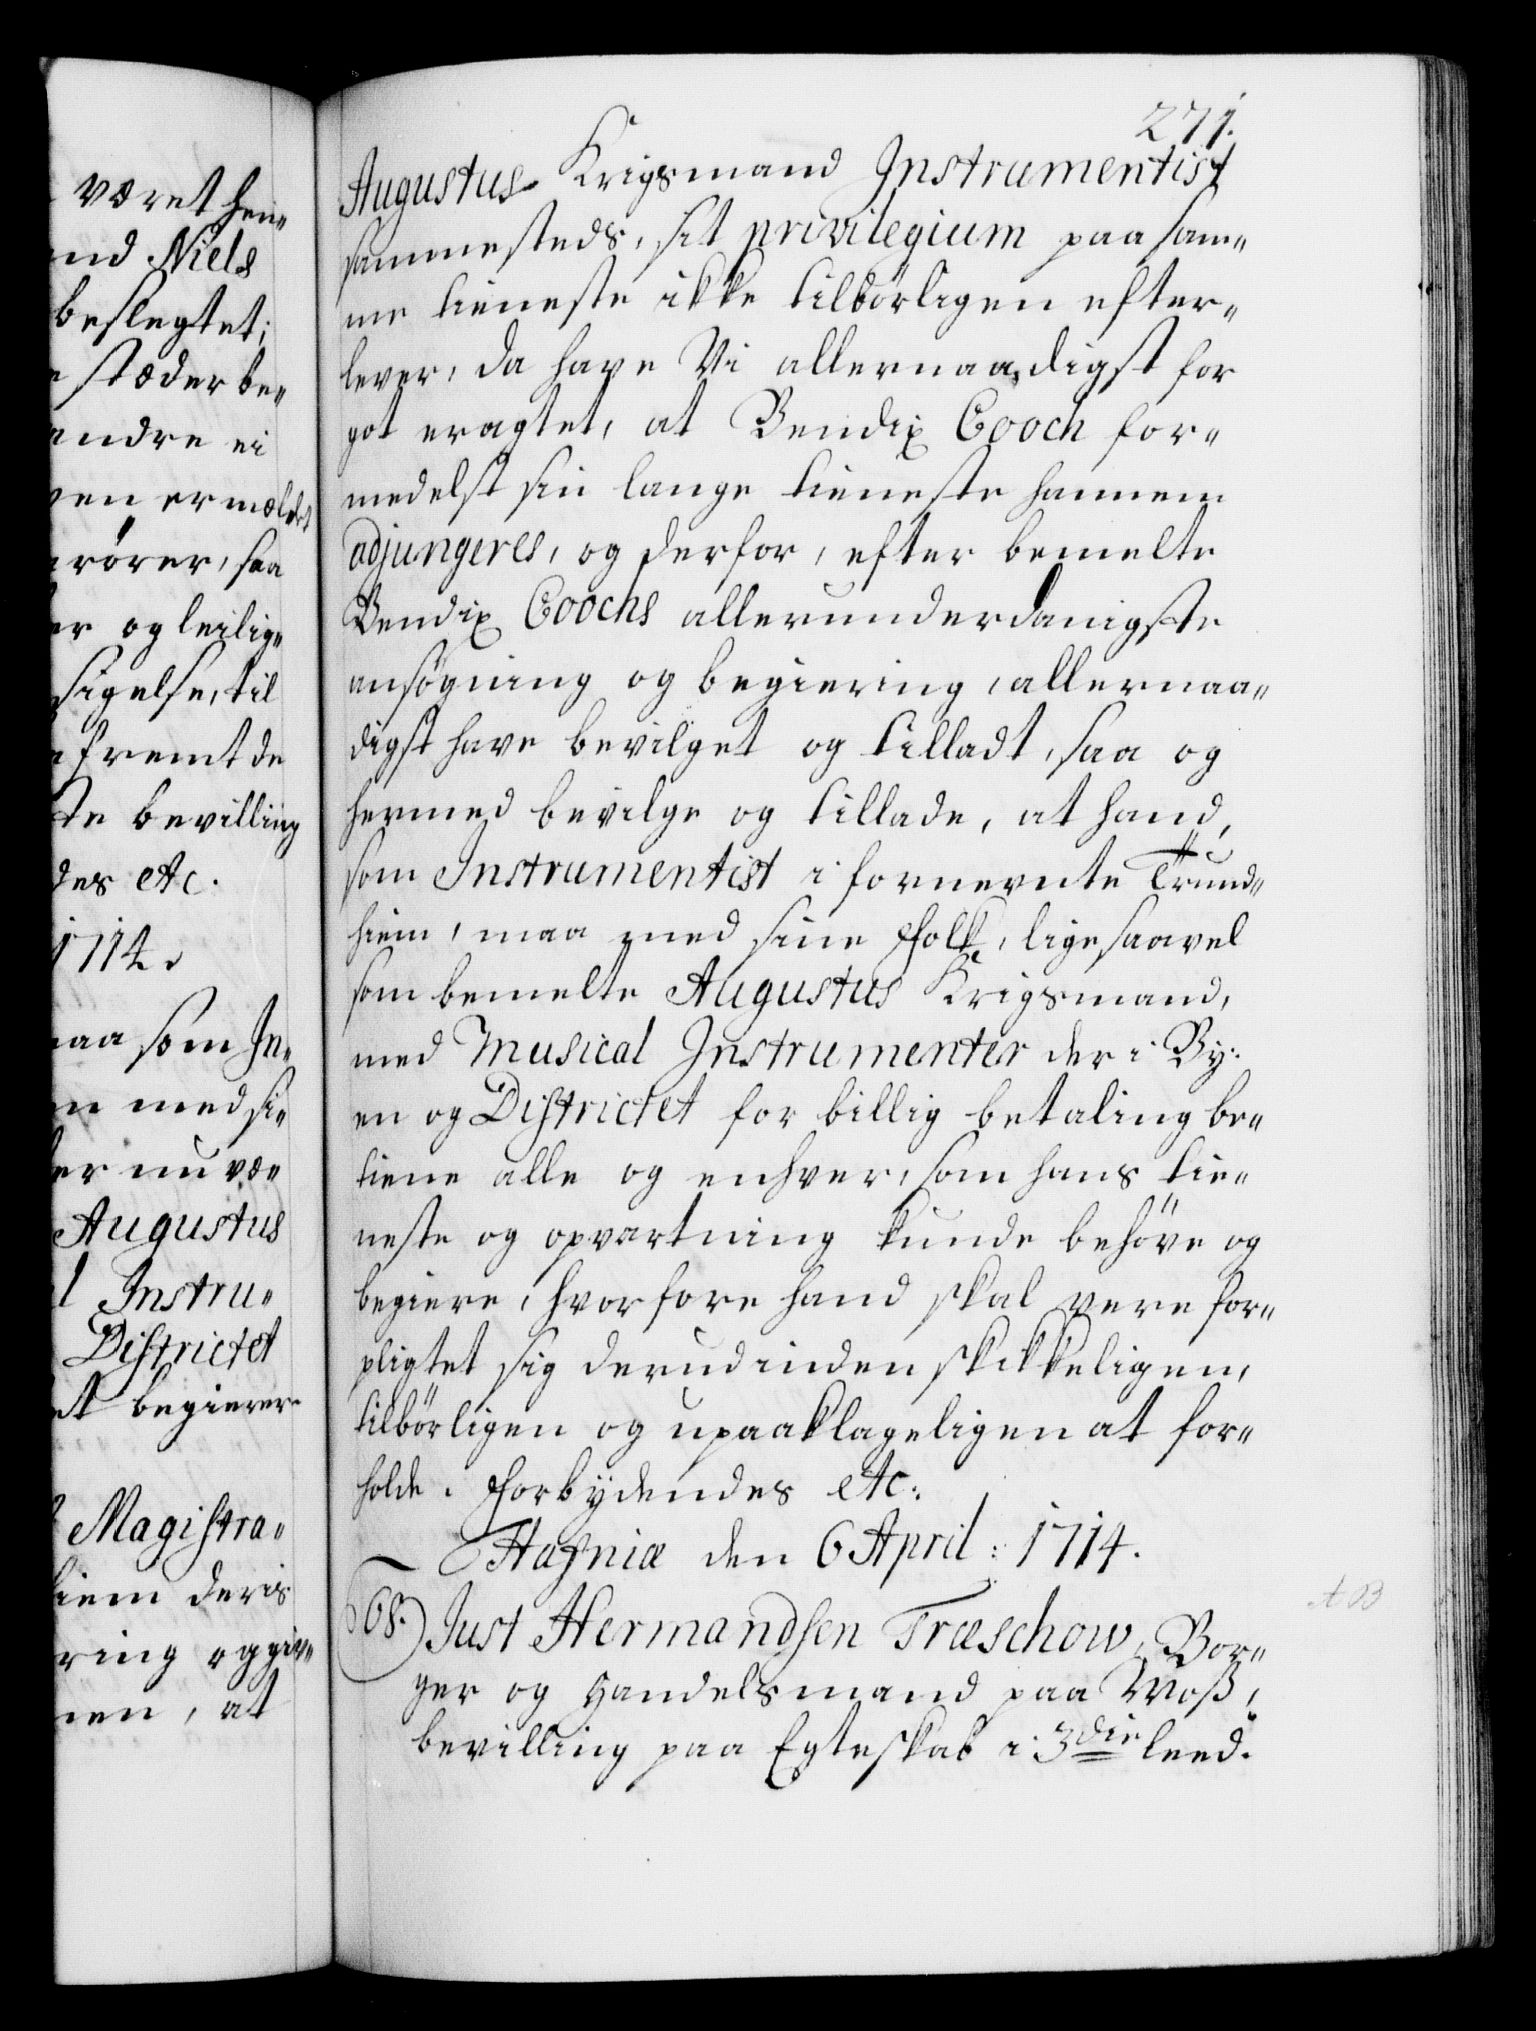 været hen„
nd Niels
beslegtet;
stæder be„
andre ei
ven ermeldt
rører, saa
er og leilig„
sigelse, til
fremt de
te bevilling
des etc.
1714.
naa som In„
n med si„
er nu væ„
Augustus
l Instru„
Districtet
et begierer
Magistra„
hiem deris
ring og giv„
nen, at
271.
Augustus Krigsmand Instrumentist
sammesteds, sit privilegium paa sam„
me tieneste ikke tilbørligen efter„
lever, da have Vi allernaadigst for
got eragtet, at Bendix Cooch for„
medelst sin lange tieneste hannem
adjungeres, og derfor, efter bemelte
Bendix Coochs allerunderdanigste
ansøgning og begiering, allernaa„
digst have bevilget og tilladt, saa og
hermed bevilge og tillade, at hand,
som Instrumentist i fornevnte Trund„
hiem, maa med sine Folk, ligesaavel
som bemelte Augustus Krigsmand,
med Musical Instrumenter der i By„
en og Districtet for billig betaling be„
tiene alle og enhver, som hans tie„
neste og opvartning kunde behöve og
begiere, hvorfore hand skal vere for„
pligtet sig derudinden skikkeligen,
tilbörligen og upaaklageligen at for„
holde. Forbydendes etc.
Hafniæ den 6 April: 1714.
68.) Just Hermandsen Træschow, Bor„
ger og Handelsmand paa Moss,
bevilling paa Egteskab i 3die leed.